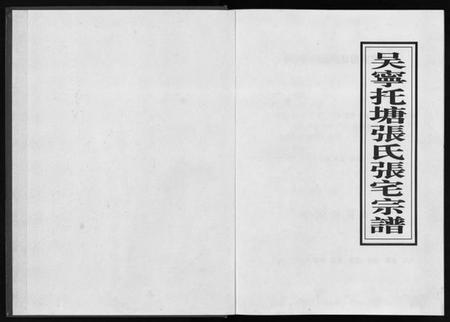 吴寧托塘張氏張宅宗譜